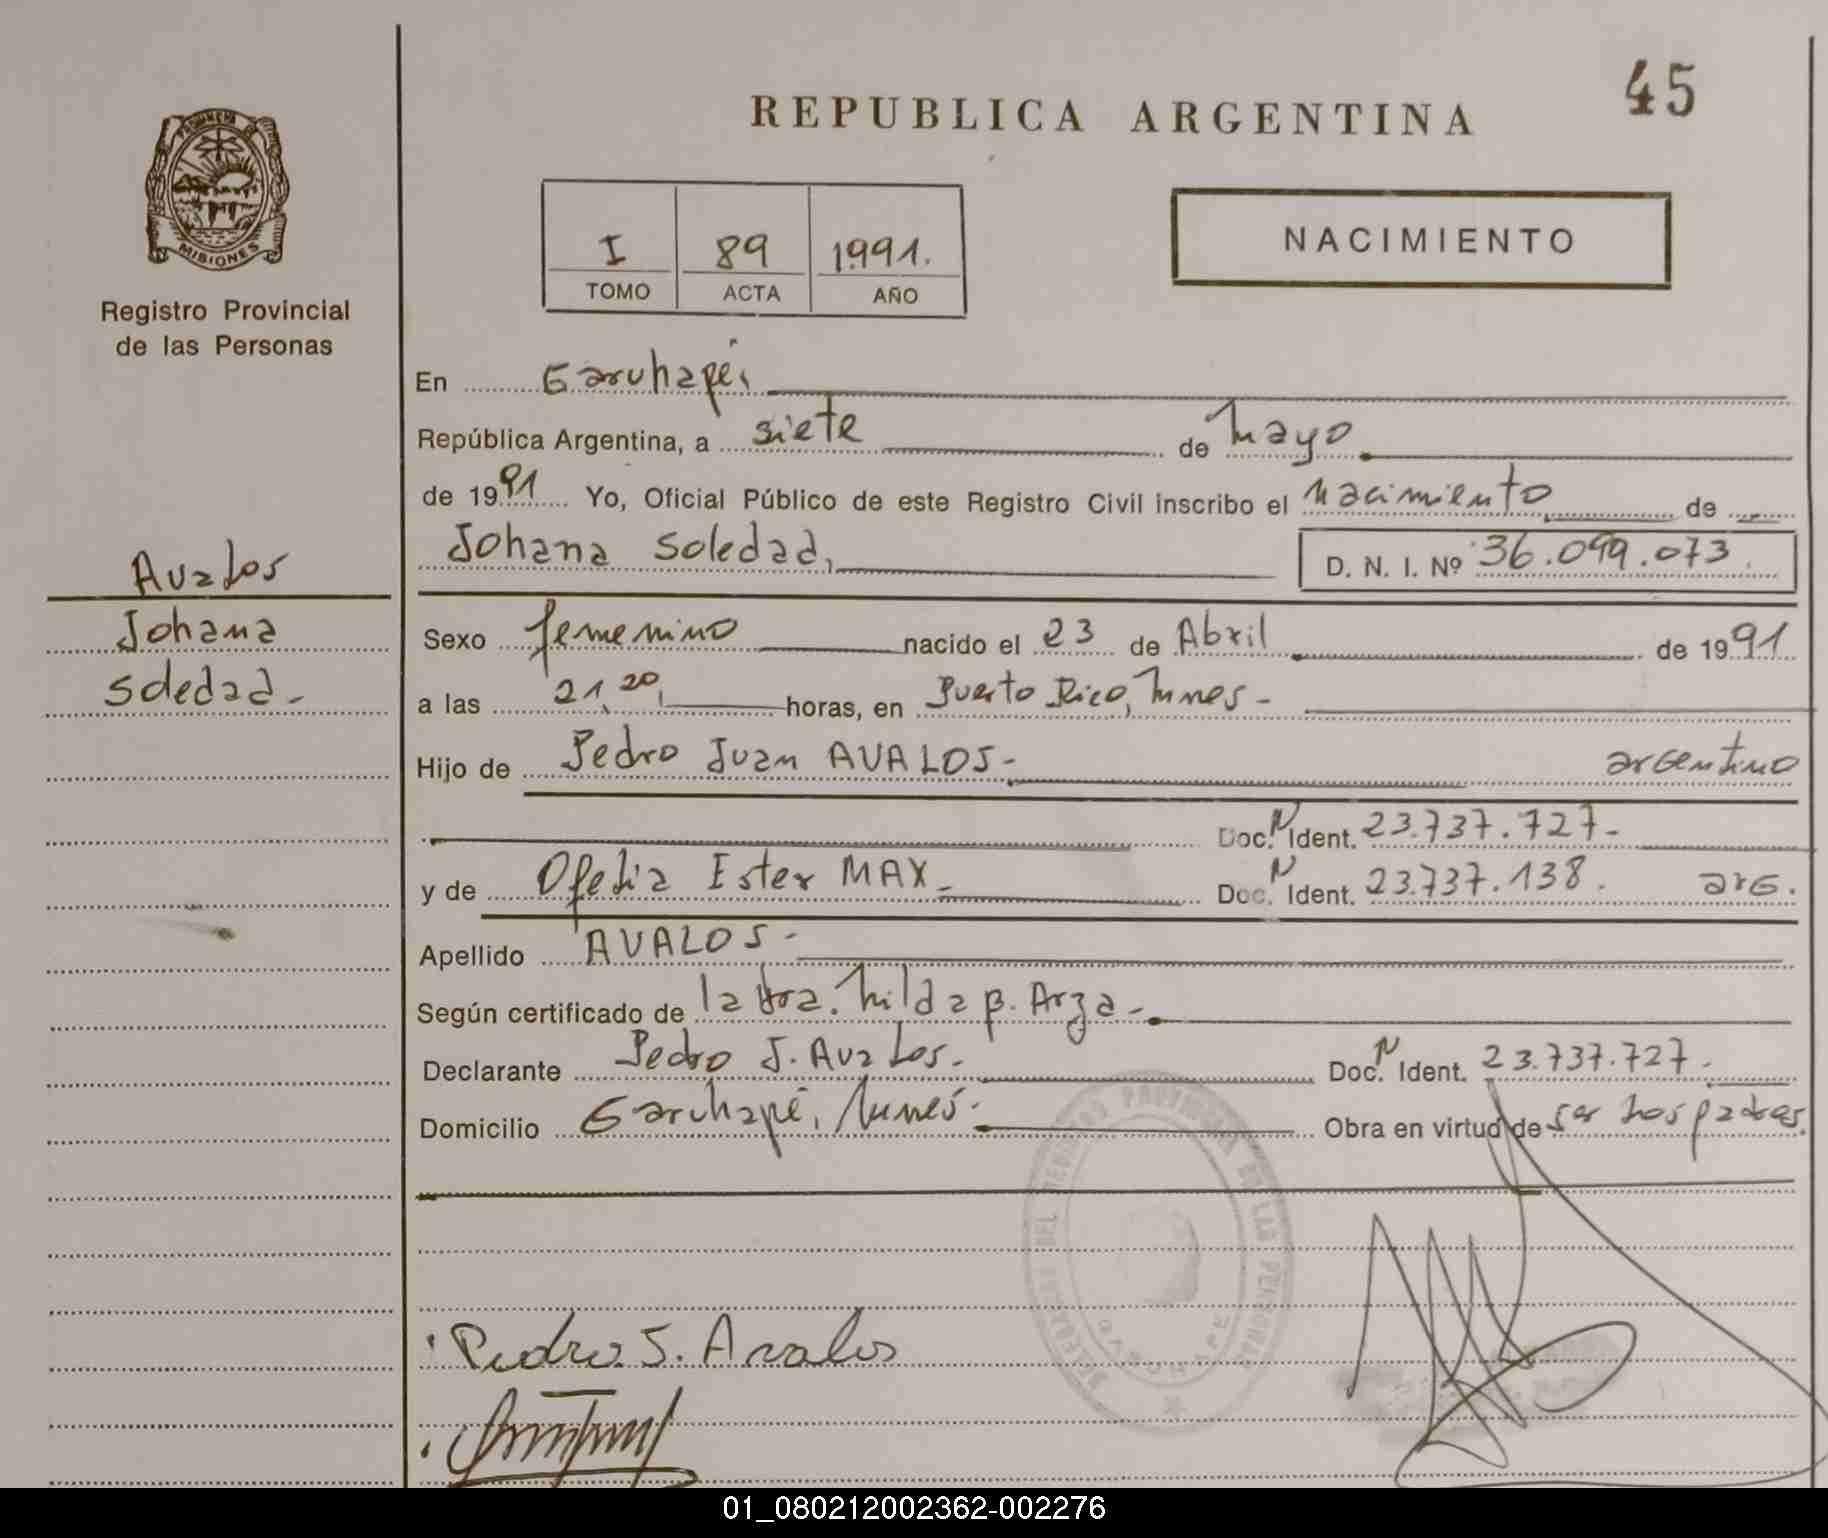 45
REPUBLICA ARGENTINA
PROVINCIA DE
MISIONES
Registro Provincial
de las Personas
I 89 1991.
TOMO ACTA AÑO
NACIMIENTO
En Garuhapé,
República Argentina, a siete de mayo
de 1991 Yo, Oficial Público de este Registro Civil inscribo el nacimiento de
Johana Soledad, D. N. I. Nº 36.099.073.
Avalos
Johana
Soledad.-
Sexo femenino nacido el 23 de Abril de 1991
a las 21,20, horas, en Puerto Rico, Mnes.-
Hijo de Pedro Juan AVALOS.- argentino
Doc. N Ident. 23.737.727.-
y de Ofelia Ester MAX.- Doc. N Ident. 23.737.138. arg.
Apellido AVALOS.-
Según certificado de la Dra. Hilda B. Arza.-
Declarante Pedro J. Avalos.- Doc. N Ident. 23.737.727.-
Domicilio Garuhapé, Mnes.- Obra en virtud de ser los padres.
PROVINCIAL DE LAS PERSONAS
GARUHAPE
Pedro J. Avalos
01_080212002362-002276